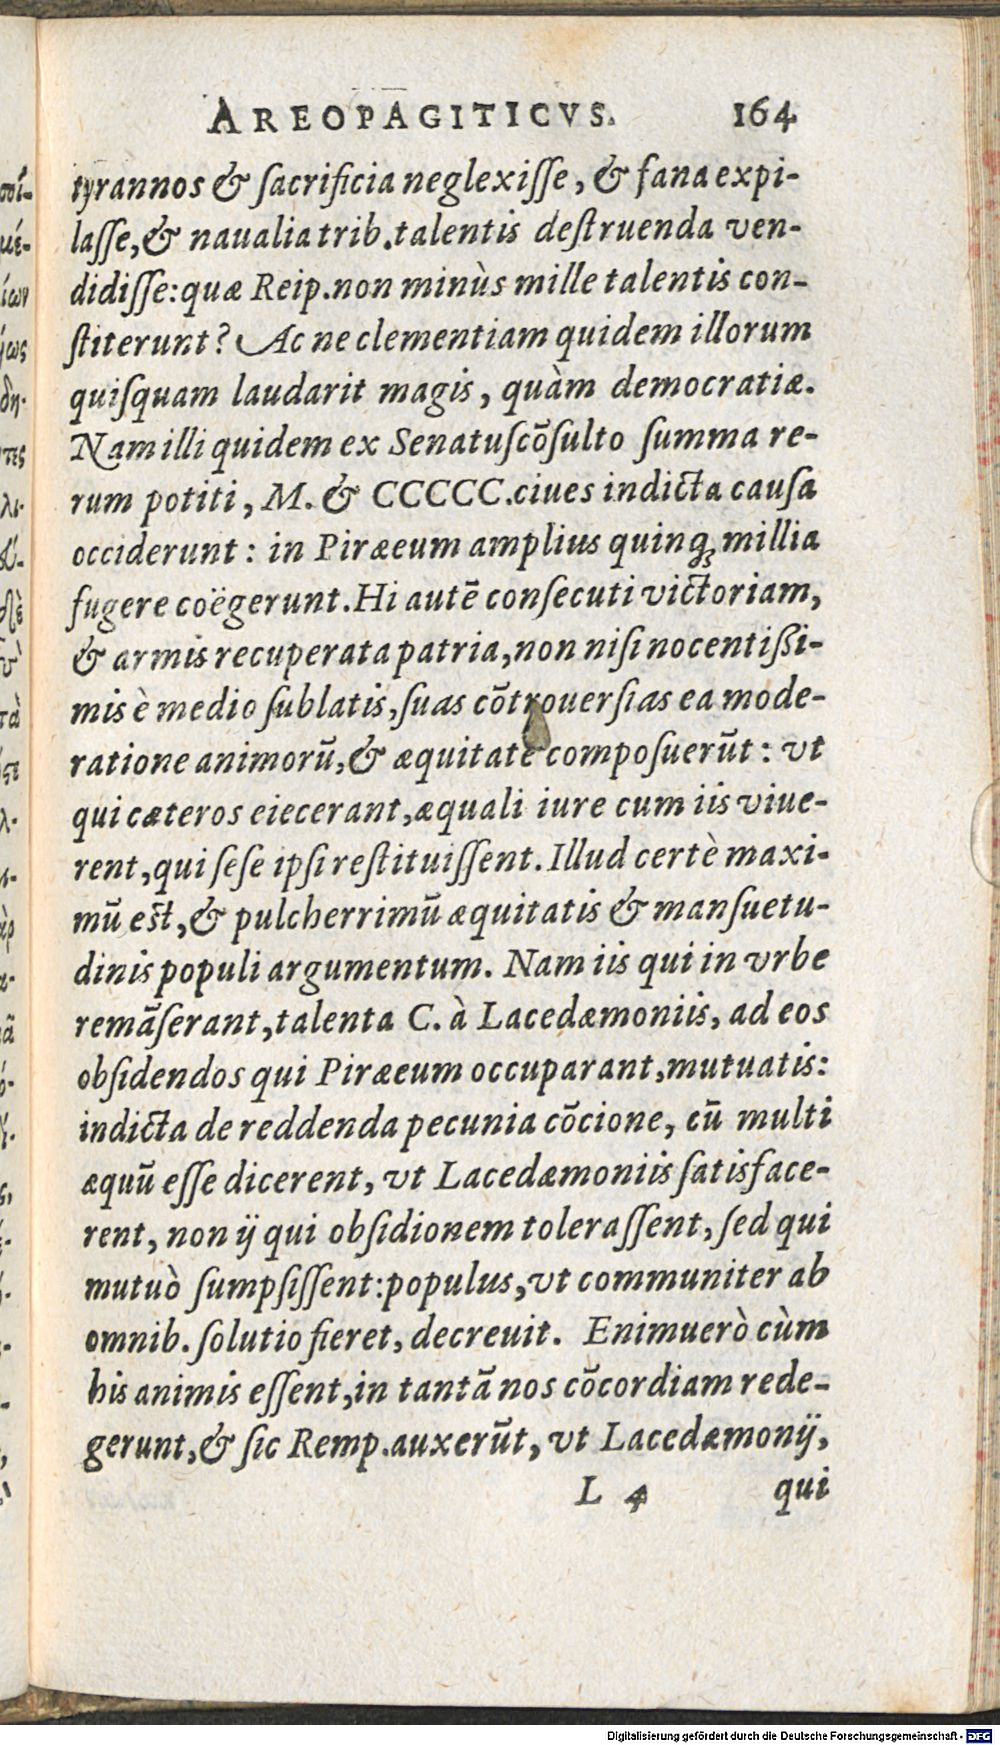 AREOPAGITICVS. 164
tyrannos & ſacrificia neglexiſſe, & fana expi-
laſſe, & naualia trib. talentis deſtruenda ven-
didiſſe: quæ Reip. non minùs mille talentis con-
ſtiterunt? Ac ne clementiam quidem illorum
quiſquam laudarit magis, quàm democratiæ.
Nam illi quidem ex Senatuſcōſulto ſumma re-
rum potiti, M. & CCCCC. ciues indicta cauſa
occiderunt: in Piræeum amplius quinq; millia
fugere coëgerunt. Hi autē conſecuti victoriam,
& armis recuperata patria, non niſi nocentißi-
mis è medio ſublatis, ſuas cōtrouerſias ea mode-
ratione animorū, & æquitate compoſuerūt: vt
qui cæteros eiecerant, æquali iure cum iis viue-
rent, qui ſeſe ipſi reſtituiſſent. Illud certè maxi-
mū eſt, & pulcherrimū æquitatis & manſuetu-
dinis populi argumentum. Nam iis qui in vrbe
remāſerant, talenta C. à Lacedæmoniis, ad eos
obſidendos qui Piræeum occuparant, mutuatis:
indicta de reddenda pecunia cōcione, cū multi
æquū eſſe dicerent, vt Lacedæmoniis ſatisface-
rent, non ij qui obſidionem toleraſſent, ſed qui
mutuò ſumpſiſſent: populus, vt communiter ab
omnib. ſolutio fieret, decreuit. Enimuerò cùm
his animis eſſent, in tantā nos cōcordiam rede-
gerunt, & ſic Remp. auxerūt, vt Lacedæmonij,
L 4 qui
Digitalisierung gefördert durch die Deutsche Forschungsgemeinschaft - DFG